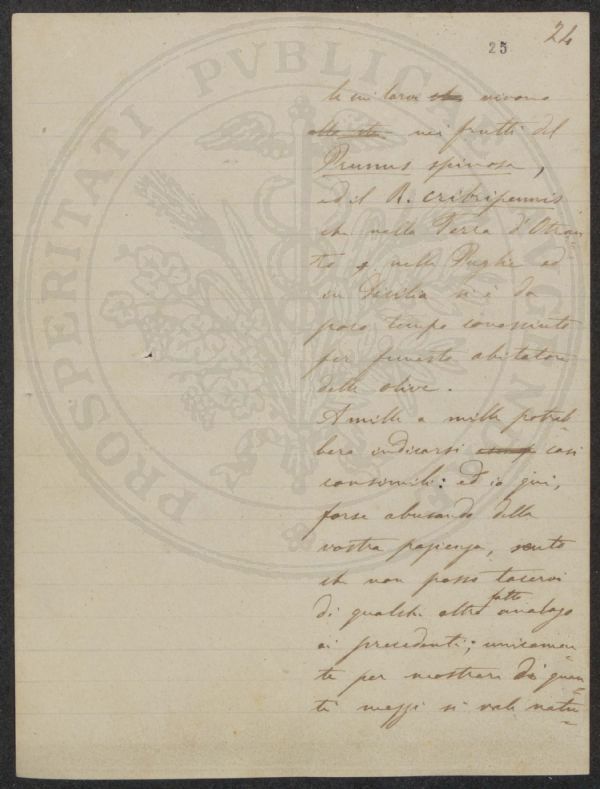 25
24
te cui larve che vivono
nei frutti del
Prunus spinosa,
ed il R. cribripennis
che nella Terra d'Otran=
to e nelle Puglie ed
in Sicilia si è da
poco tempo conosciuto
per funesto abitatore
delle olive.
A mille a mille potreb=
bero indicarsi casi
consimili: ed io qui,
forse abusando della
vostra pazienza, sento
che non posso tacervi
di qualche altro fatto analogo
ai precedenti; unicamen=
te per mostrare di quan=
ti mezzi si vale natu=
PROSPERITATI PVBLICAE AVGENDAE